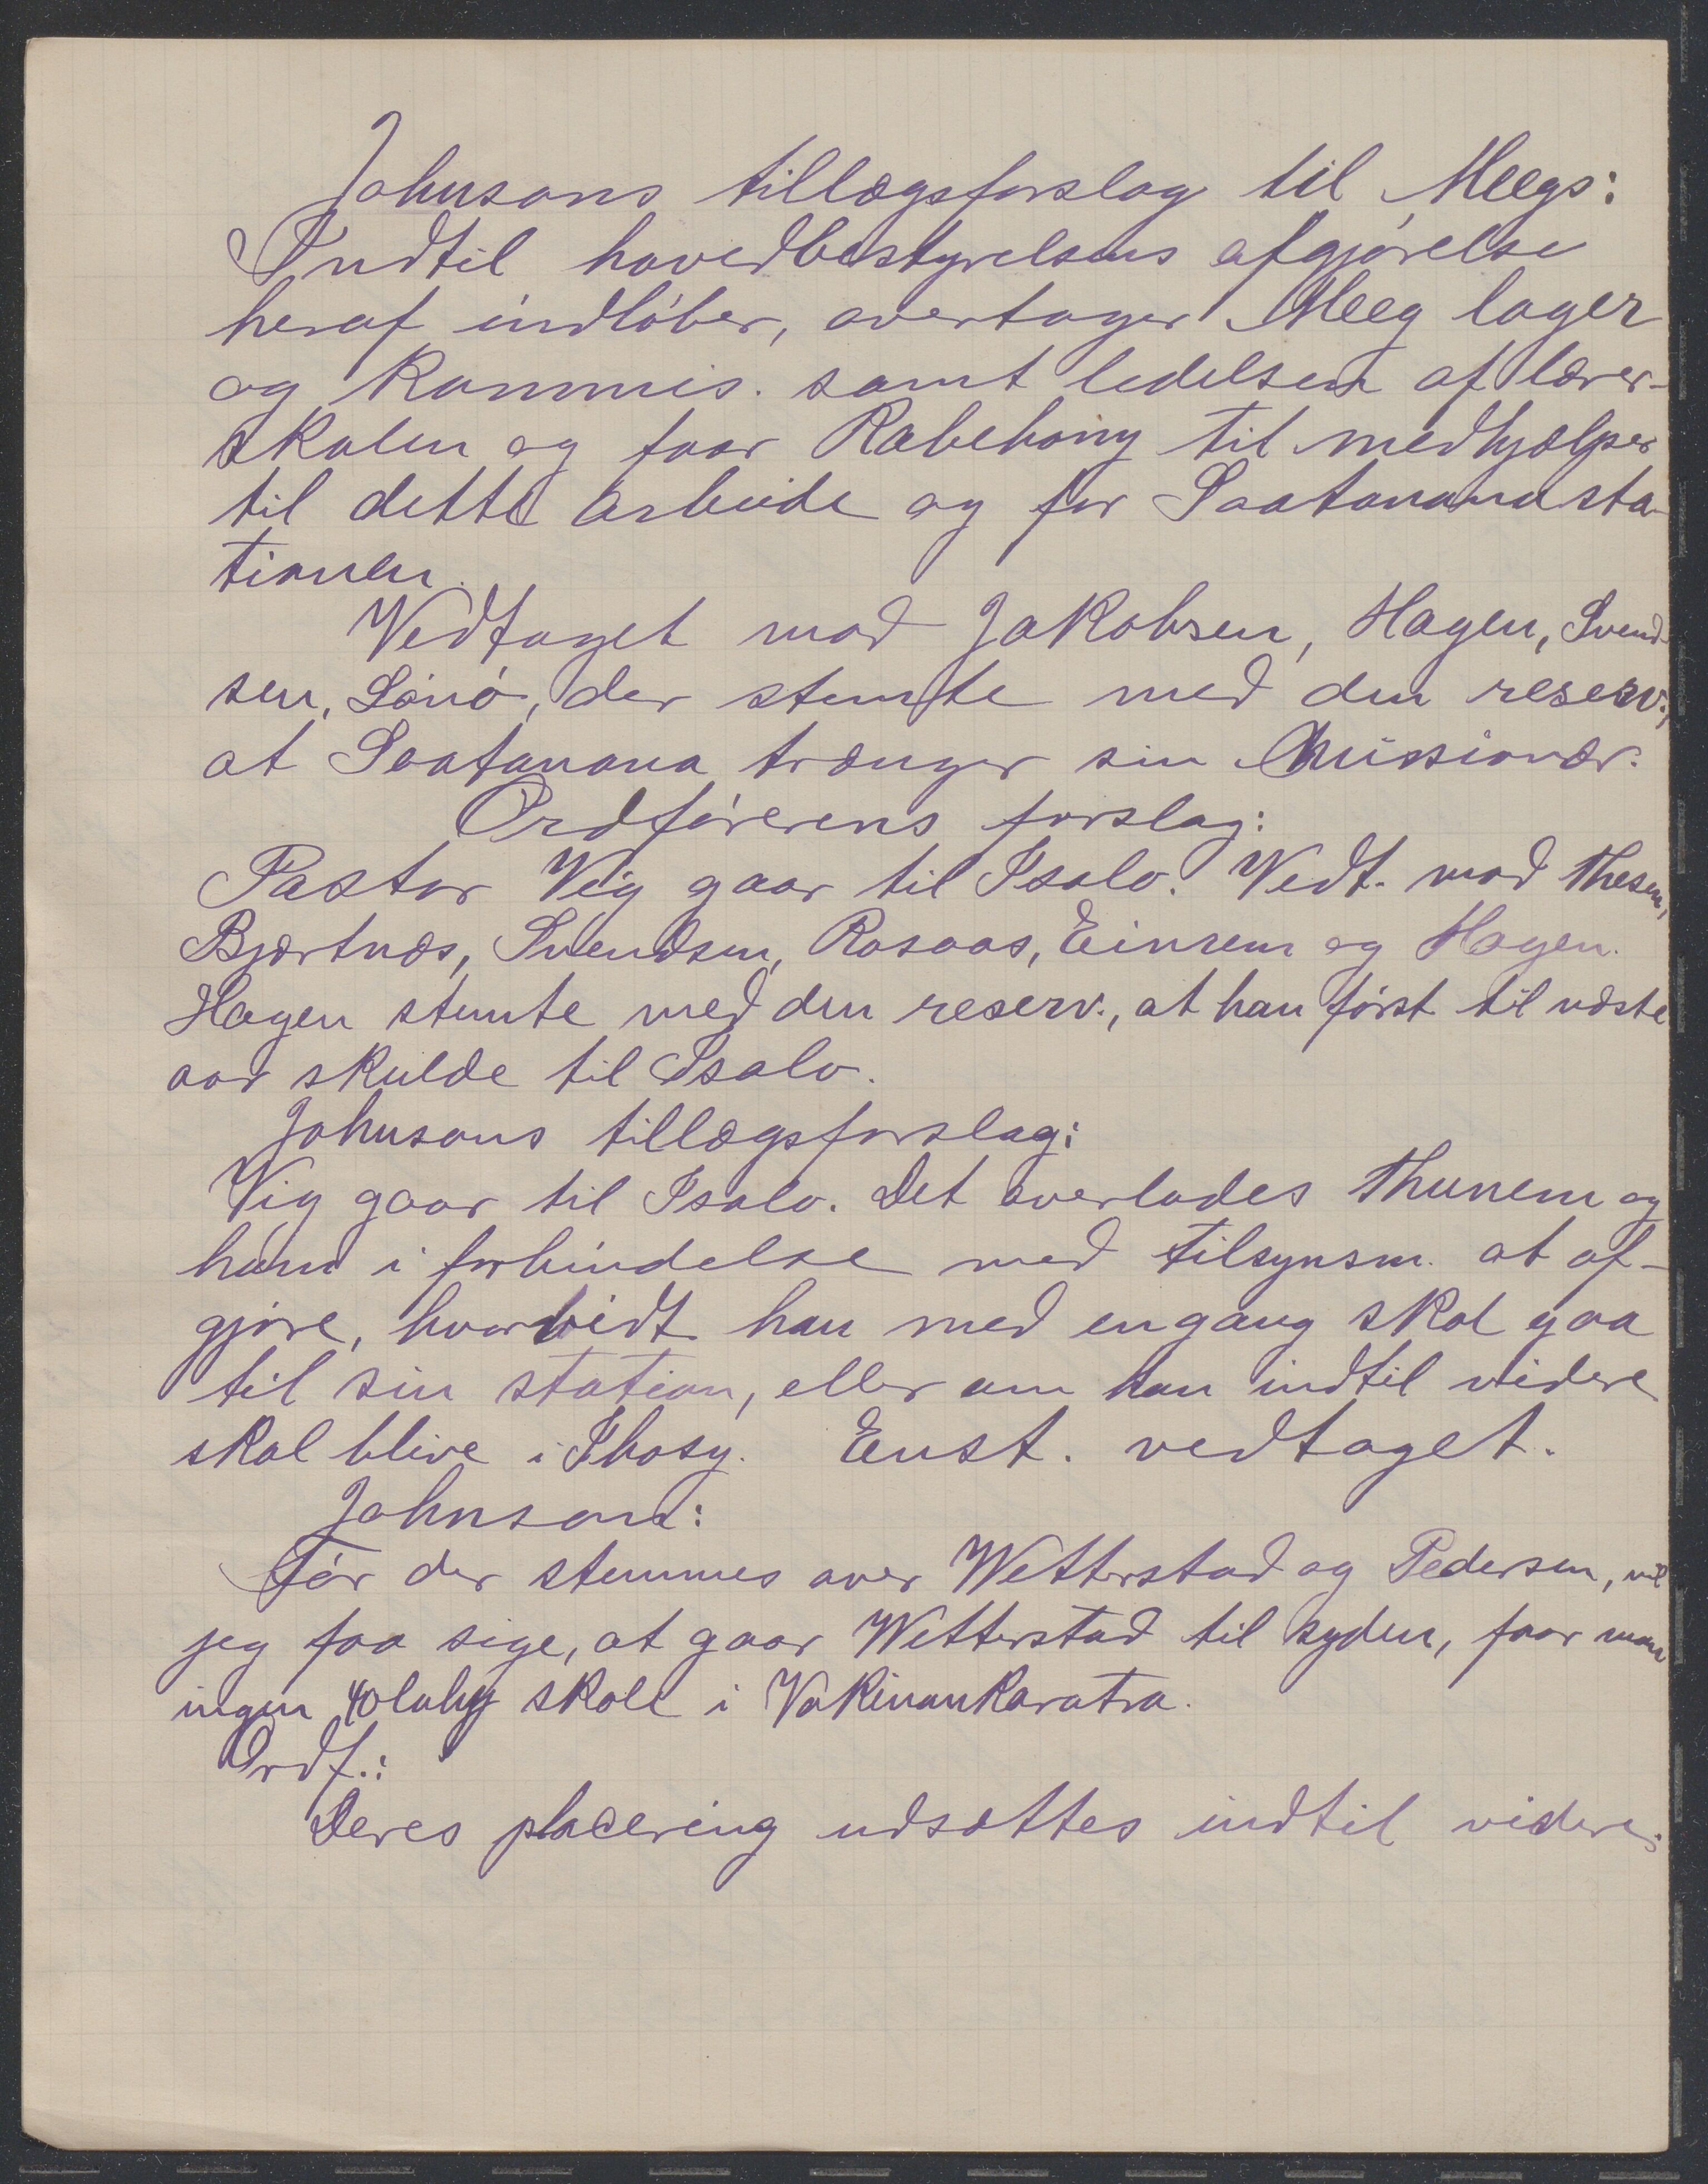 Johnsons tillægsforslag til Meegs:
Indtil hovedbestyrelsens afgjørelse
heraf indløber, overtager Meeg lager
og Kommis. samt ledelsen af lærer-
skolen og faar Rabehany til medhjælper
til dette arbeide og for Soatananasta-
tionen.
Vedtaget mod Jakobsen, Hagen, Svend-
sen, Lønø, der stemte med den reserv.,
at Soatanana trænger sin Missionær.
Ordførerens forslag:
Pastor Vig gaar til Isalo. Vedt. mod Thesen,
Bjærtnæs, Svendsen, Rosaas, Einrem og Hagen.
Hagen stemte med den reserv., at han først til næste
aar skulde til Isalo.
Johnsons tillægsforslag:
Vig gaar til Isalo. Det overlades Thunem og
ham i forbindelse med tilsynsm. at af-
gjøre, hvorvidt han med engang skal gaa
til sin station, eller om han indtil videre
skal blive i Ihosy. Enst. vedtaget.
Johnson:
Før der stemmes over Wetterstad og Pedersen, vil
jeg faa sige, at gaar Wetterstad til syden, faar man
ingen 40lahy skole i Vakinankaratra.
Ordf.:
Deres placering udsættes indtil videre.